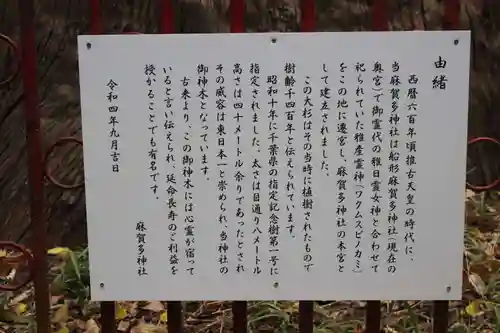 由緒
西暦六百年頃推古天皇の時代に、
当麻賀多神社は船形麻賀多神社(現在の
奥宮)で御霊代の雅日霊女神と合わせて
祀られていた雅産霊神(ワクムスビノカミ)
をこの地に遷宮し、麻賀多神社の本宮と
して建立されました。
この大杉はその当時に植樹されたもので
樹齢千四百年と伝えられています。
昭和十年に千葉県の指定記念樹第一号に
指定されました。太さは目通り八メートル
高さは四十メートル余りであったとされ
その威容は東日本一と崇められ、当神社の
御神木となっています。
古来より、この御神木には心霊が宿って
いると言い伝えられ、延命長寿のご利益を
授かることでも有名です。
令和四年九月吉日
麻賀多神社